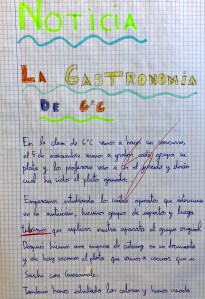 NOTICIA
LA GASTRONOMÍA
DE 6ºC
En la clase de 6ºC vamos a hacer un concurso,
el 5 de noviembre vamos a cada grupo su
plato y los profesores van a ser el jurado y dirán
cual ha sido el plato ganador.
Empezamos estudiando los aparatos que intervienen
en la nutrición, hicimos grupos de expertos y luego
tuvimos que explicar nuestro aparato al grupo original.
Después hicimos una empresa de catering en un
y de hay sacamos el plato que vamos a cocinar que es
Sushi con Guacamole.
También hemos estudiado las calorías y hemos creado